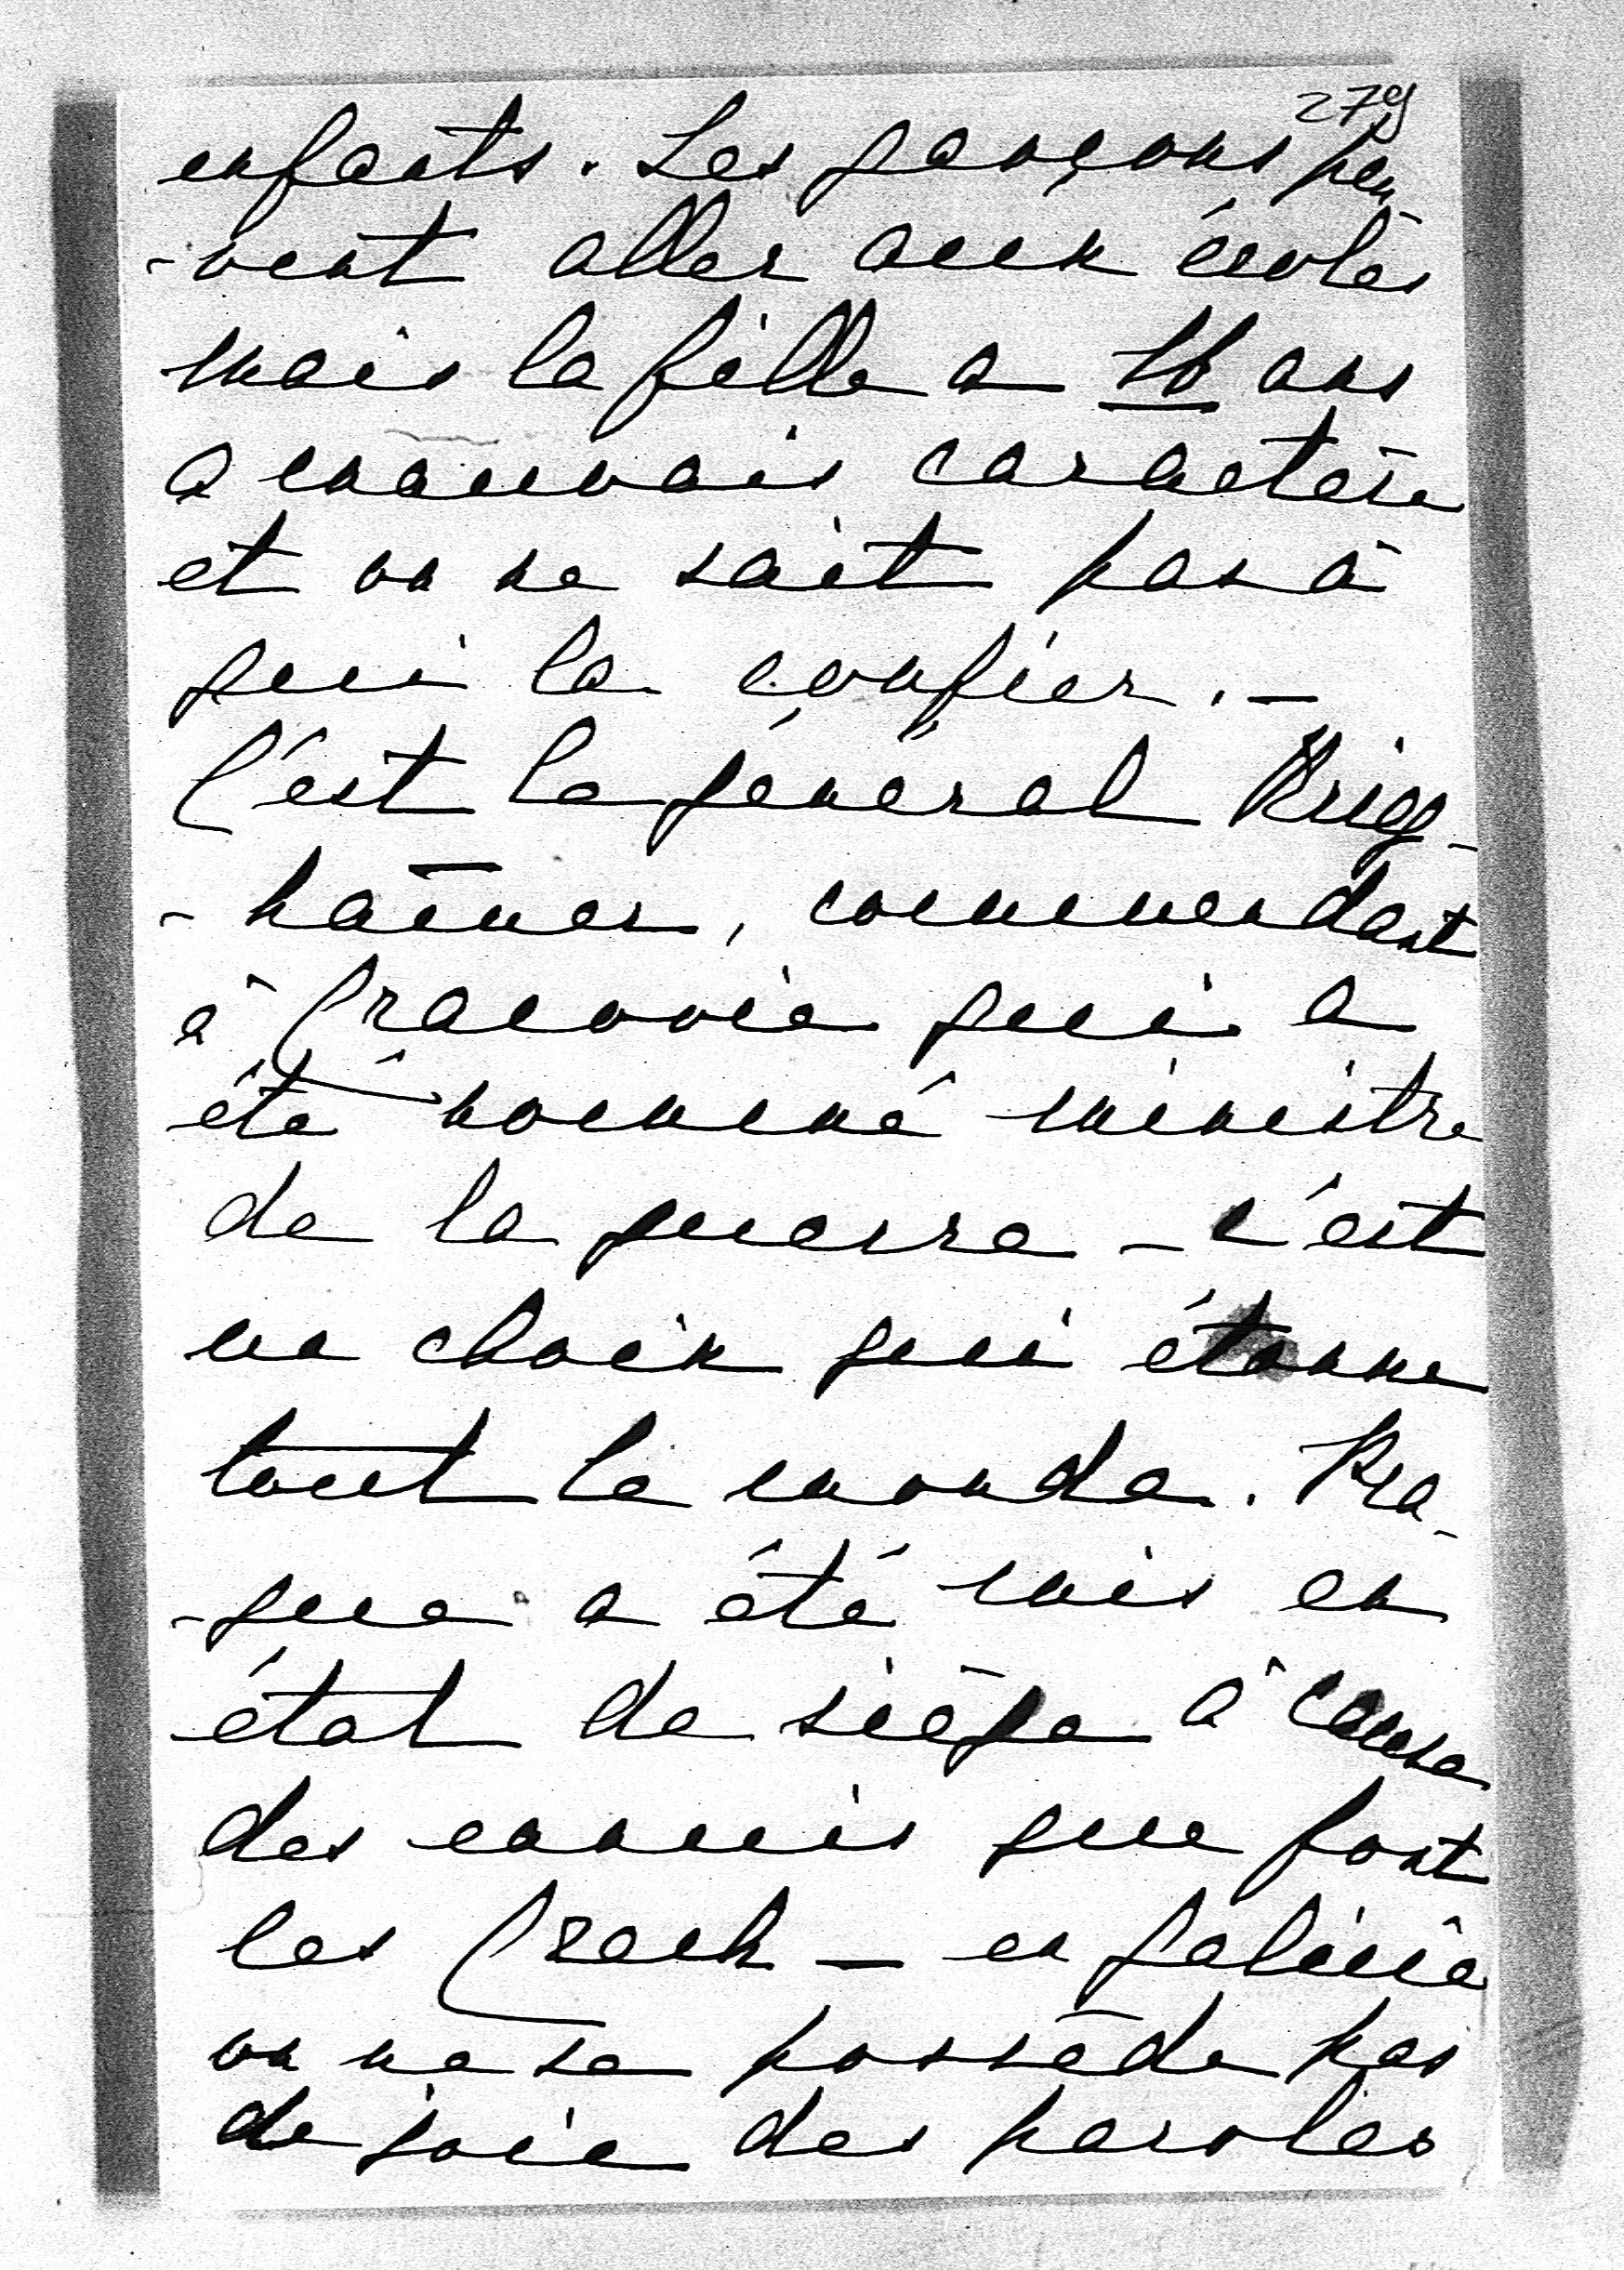 279
enfants. Les garçons peu
-vent aller aux écoles
mais la fille a 16 ans
a mauvais caractère
et on ne sait pas à
qui la confier. —
C'est le général Krieg-
-hamer, commendant
à Cracovie qui a
été nommé ministre
de la guerre - c'est
un choix qui étonne
tout le monde. Pra-
-gue a été mis en
état de siège à cause
des ennuis que font
les Czech — en Galicie
on ne se possède pas
de joie des paroles